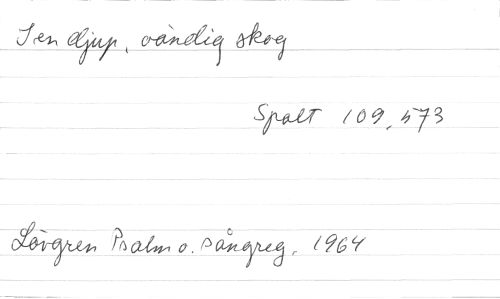 I en djup, oändlig skog
Spalt 109, 573
Lövgren Psalm o. sångreg. 1964